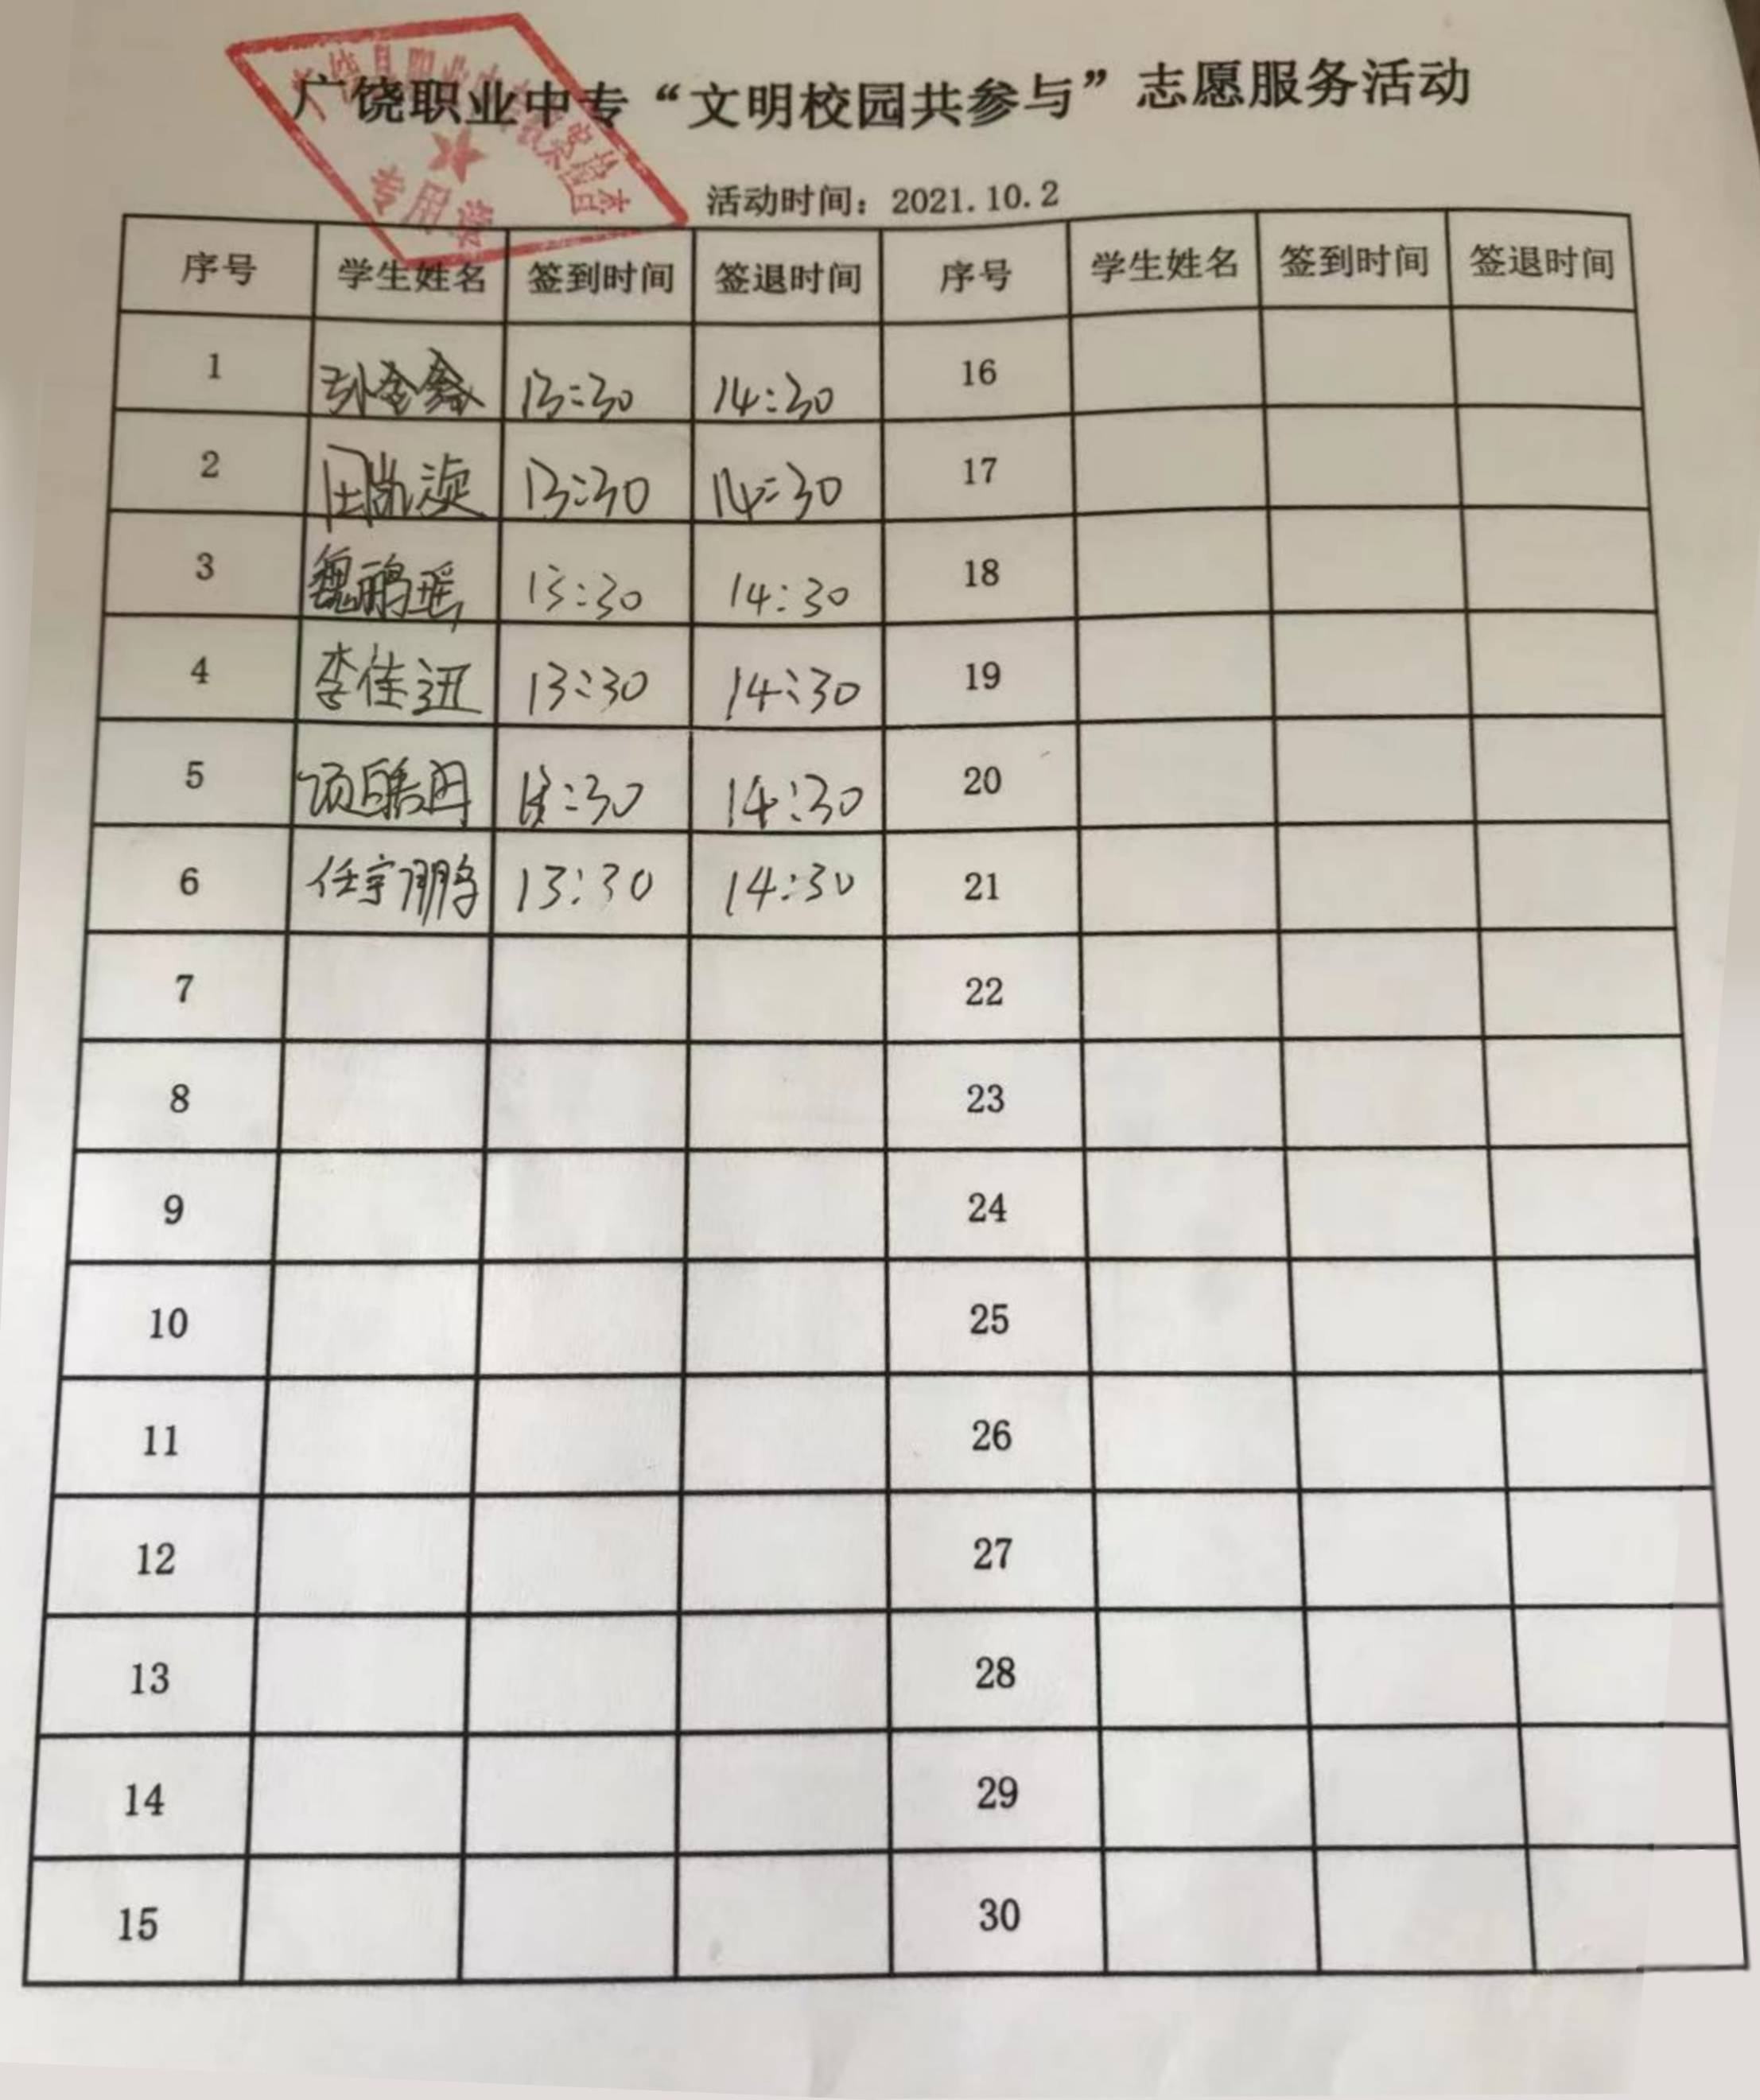 广饶职业中专“文明校园共参与”志愿服务活动
专用章
活动时间：2021.10.2
序号 学生姓名 签到时间 签退时间 序号 学生姓名 签到时间 签退时间
1 孙金鑫 13:30 14:30 16
2 13:30 14:30 17
3 魏 瑶 13:30 14:30 18
4 李佳迅 13:30 14:30 19
5 13:30 14:30 20
6 任宇鹏 13:30 14:30 21
7 22
8 23
9 24
10 25
11 26
12 27
13 28
14 29
15 30